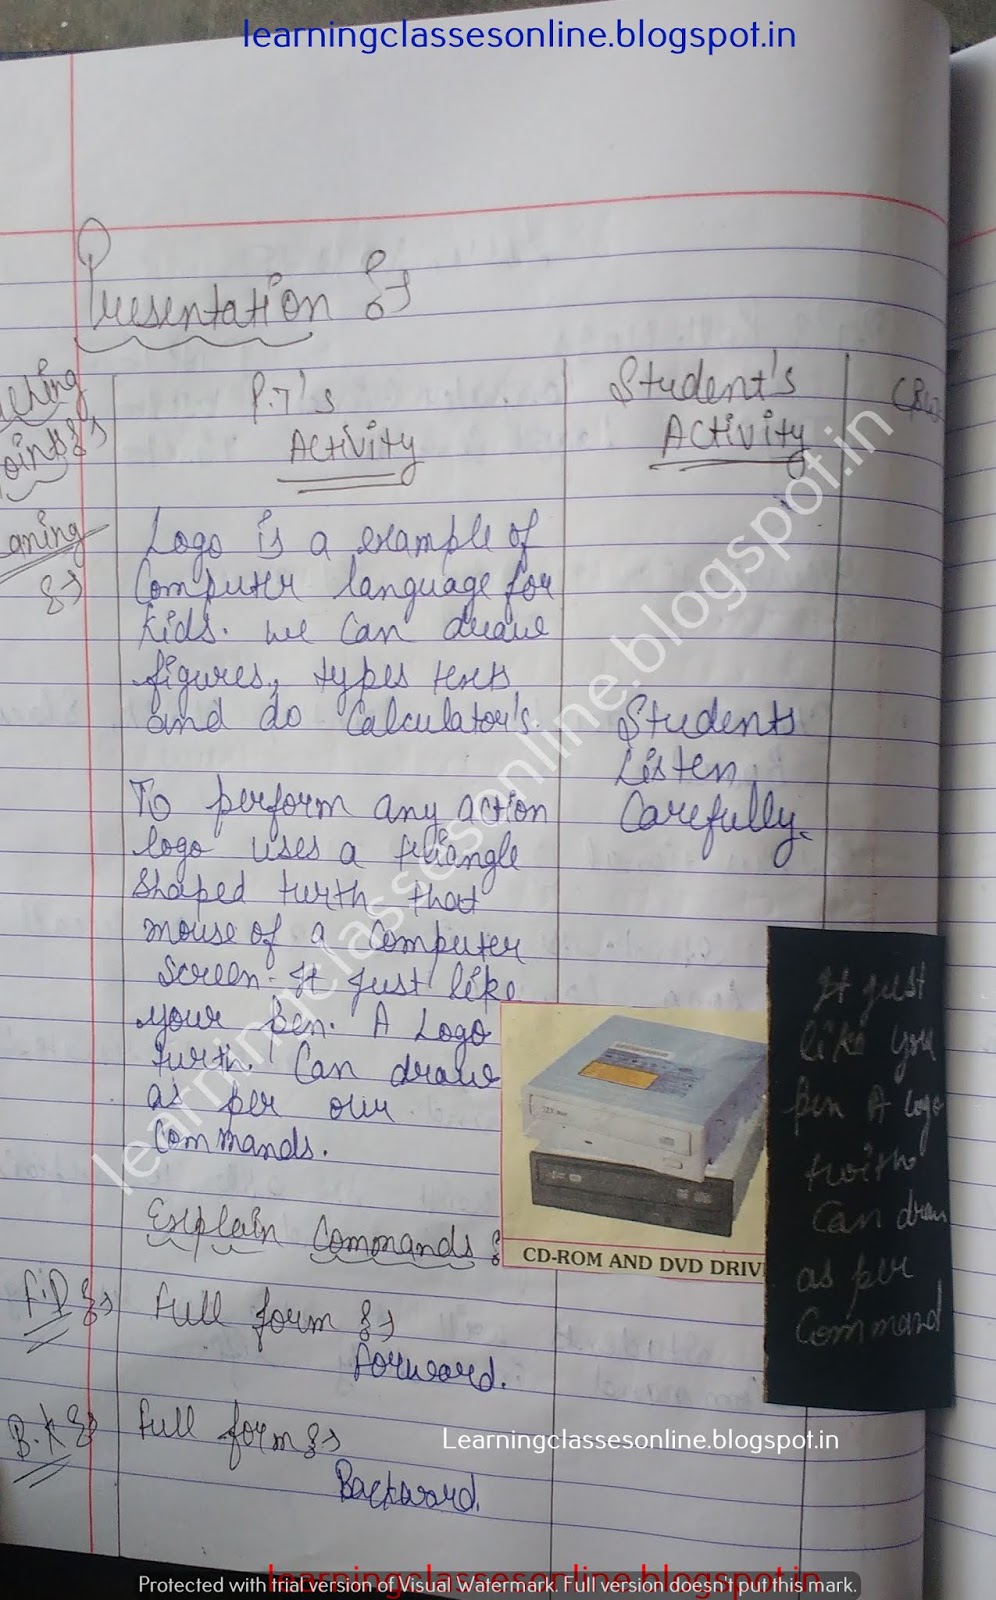 learningclassesonline.blogspot.in
Presentation :-
P.T's
Activity
Student's
Activity
aning
:-
Logo is a example of
Computer language for
kids. we can draw
figures, types texts
and do Calculator's.
Students
Listen
Carefully.
To perform any action
logo uses a triangle
shaped turth that
mouse of a Computer
Screen. It just like
your Pen. A Logo
turth. Can draw
as per our
Commands.
It just
like you
Pen A logo
twith
Can draw
as per
Command
CD-ROM AND DVD DRIV
Explain Commands :
F.D :-
full form :-
forward.
B.K :-
full form :-
Backward.
learningclassesonline.blogspot.in
Learningclassesonline.blogspot.in
learningclassesonline.blogspot.in
Protected with trial version of Visual Watermark. Full version doesn't put this mark.